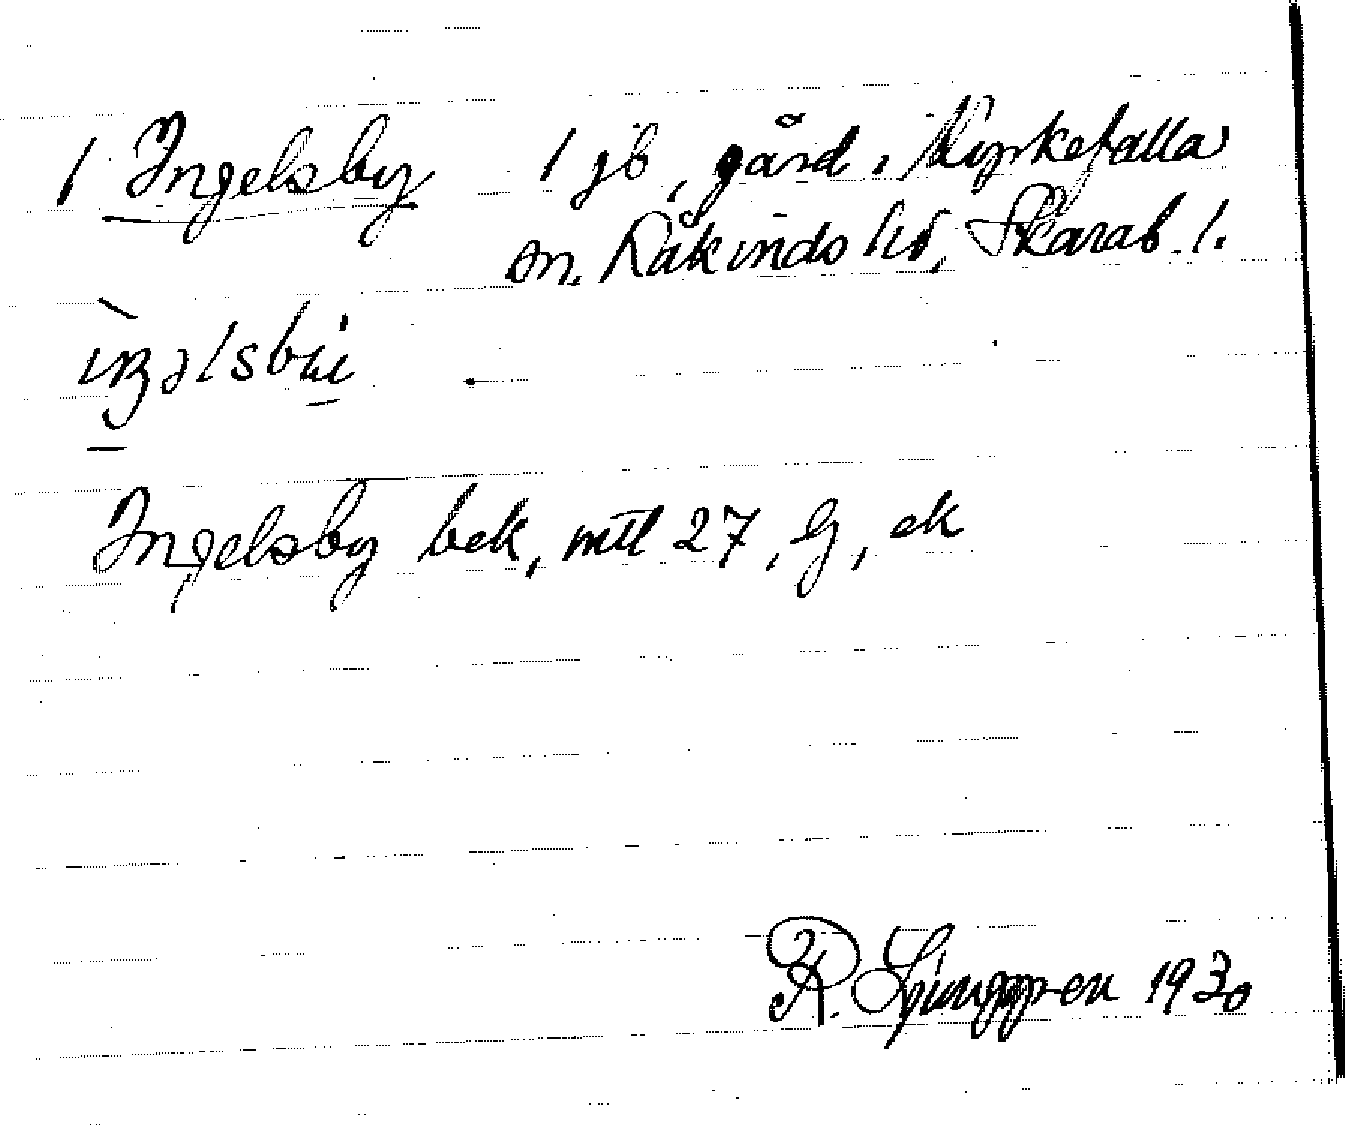 1 Ingelsby 1 jb, gård i Kyrkefalla
sn. Kåkinds hd, Skarab. l.
Ingelsby bek, mtl 27, G, ek
R. Ljunggren 1930